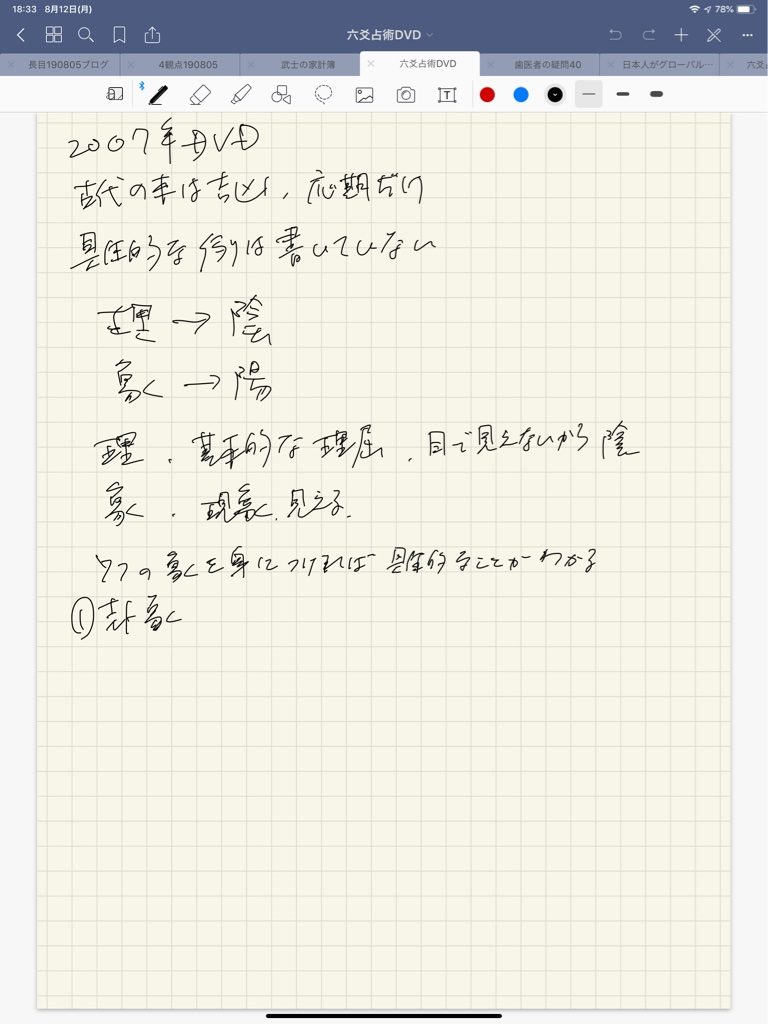 18:33 8月12日(月) 78%
六爻占術DVD
長目190805ブログ 4観点190805 武士の家計簿 六爻占術DVD 歯医者の疑問40 日本人がグローバル… 六爻占
2007年DVD
古代の本は吉凶、応期だけ
具体的な例は書いていない
理→陰
象→陽
理、基本的な理屈、目で見えないから陰
象、現象、見える、
7つの象を身につければ具体的なことがわかる
①卦象